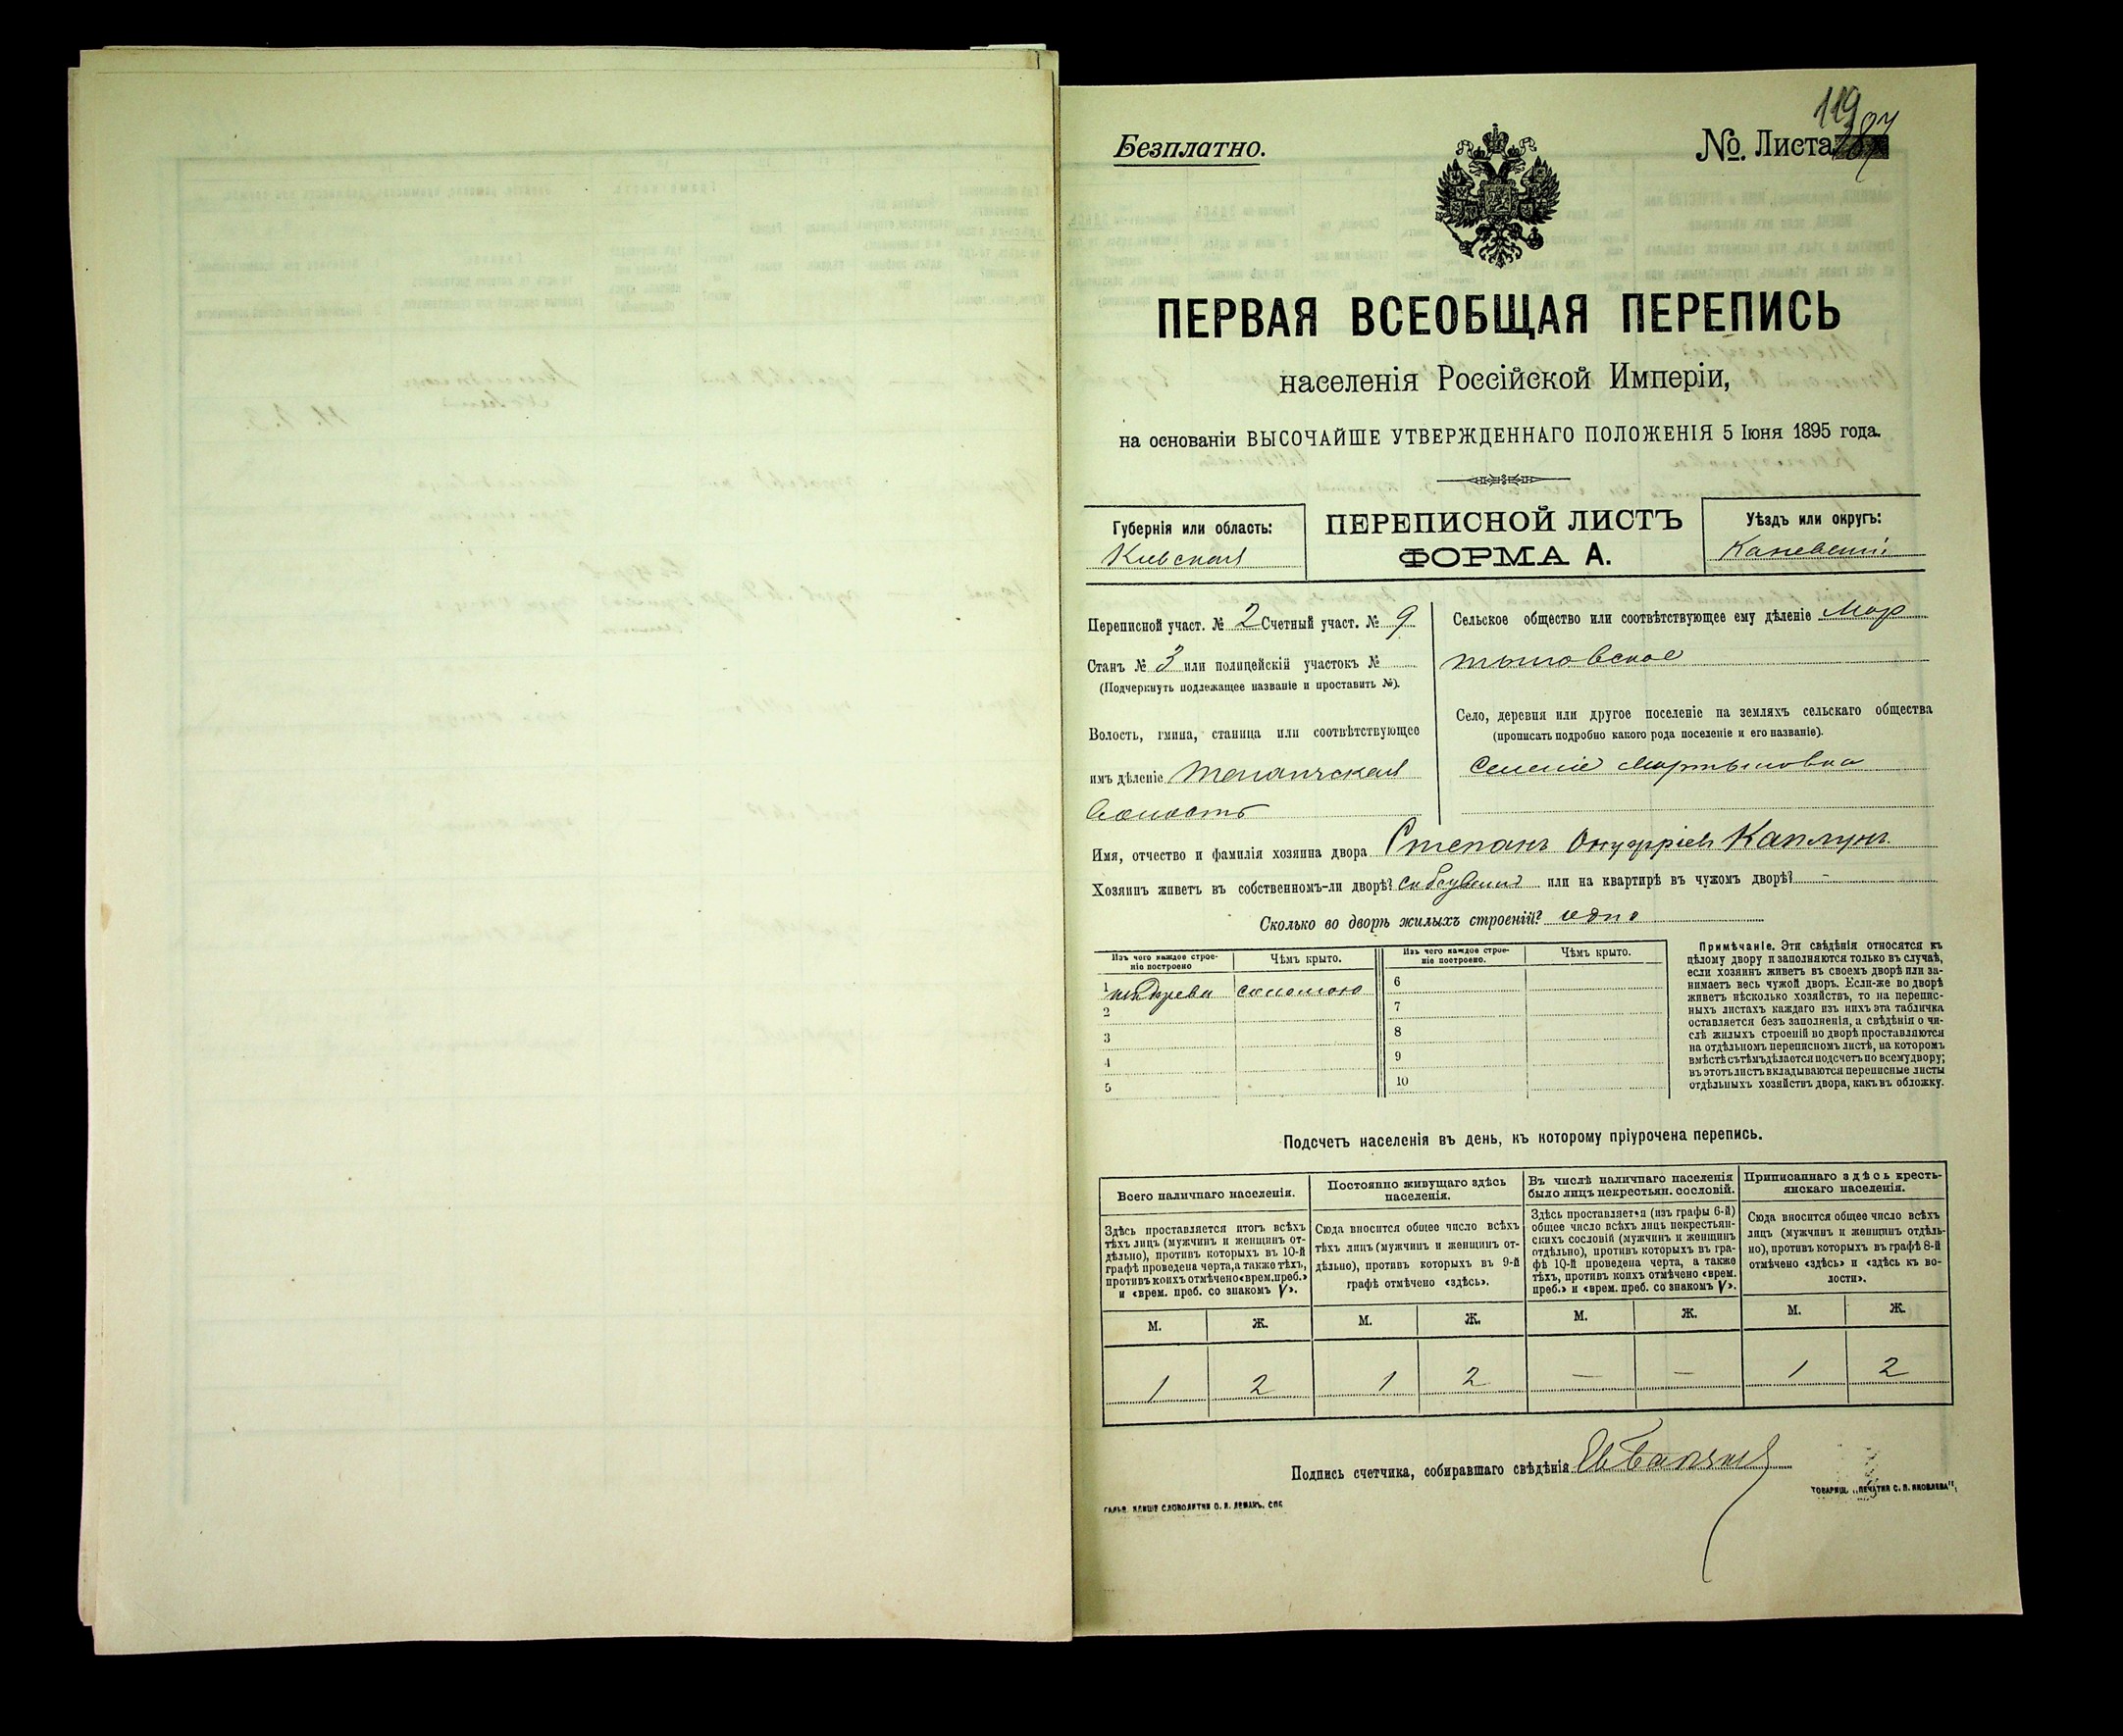 119
Безплатно.
№. Листа 387
ПЕРВАЯ ВСЕОБЩАЯ ПЕРЕПИСЬ
населенія Россійской Имперіи,
на основаніи ВЫСОЧАЙШЕ УТВЕРЖДЕННАГО ПОЛОЖЕНІЯ 5 Іюня 1895 года.
Губернія или область:
Киевская
ПЕРЕПИСНОЙ ЛИСТЪ
ФОРМА А.
Уѣздъ или округъ:
Каневский
Переписной участ. № 2 Счетный участ. № 9
Станъ № 3 или полицейскій участокъ №
(Подчеркнуть подлежащее названіе и проставить №).
Волость, гмина, станица или соотвѣтствующее
имъ дѣленіе
волость
Сельское общество или соотвѣтствующее ему дѣленіе Мар
тыновское
Село, деревня или другое поселеніе на земляхъ сельскаго общества
(прописать подробно какого рода поселеніе и его названіе).
Селеніе Мартыновка
Имя, отчество и фамилія хозяина двора Степанъ Каплунъ
Хозяинъ живетъ въ собственномъ-ли дворѣ? или на квартирѣ въ чужомъ дворѣ? -
Сколько во дворѣ жилыхъ строеній? одно
Изъ чего каждое строе-
ніе построено
Чѣмъ крыто.
Изъ чего каждое строе-
ніе построено.
Чѣмъ крыто.
1 изъ дерева соломою
2
3
4
5
6
7
8
9
10
Примѣчаніе. Эти свѣдѣнія относятся къ
цѣлому двору и заполняются только въ случаѣ,
если хозяинъ живетъ въ своемъ дворѣ или за-
нимаетъ весь чужой дворъ. Если-же во дворѣ
живетъ нѣсколько хозяйствъ, то на перепис-
ныхъ листахъ каждаго изъ нихъ эта табличка
оставляется безъ заполненія, а свѣдѣнія о чи-
слѣ жилыхъ строеній во дворѣ проставляются
на отдѣльномъ переписномъ листѣ, на которомъ
вмѣстѣ съ тѣмъ дѣлается подсчетъ по всему двору;
въ этотъ листъ вкладываются переписные листы
отдѣльныхъ хозяйствъ двора, какъ въ обложку.
Подсчетъ населенія въ день, къ которому пріурочена перепись.
Всего наличнаго населенія.
Здѣсь проставляется итогъ всѣхъ
тѣхъ лицъ (мужчинъ и женщинъ от-
дѣльно), противъ которыхъ въ 10-й
графѣ проведена черта, а также тѣхъ,
противъ коихъ отмѣчено «врем. преб.»
и «врем. преб. со знакомъ V».
Постоянно живущаго здѣсь
населенія.
Сюда вносится общее число всѣхъ
тѣхъ лицъ (мужчинъ и женщинъ от-
дѣльно), противъ которыхъ въ 9-й
графѣ отмѣчено «здѣсь».
Въ числѣ наличнаго населенія
было лицъ некрестьян. сословій.
Здѣсь проставляется (изъ графы 6-й)
общее число всѣхъ лицъ некрестьян-
скихъ сословій (мужчинъ и женщинъ
отдѣльно), противъ которыхъ въ гра-
фѣ 10-й проведена черта, а также
тѣхъ, противъ коихъ отмѣчено «врем.
преб.» и «врем. преб. со знакомъ V».
Приписаннаго здѣсь кресть-
янскаго населенія.
Сюда вносится общее число всѣхъ
лицъ (мужчинъ и женщинъ отдѣль-
но), противъ которыхъ въ графѣ 8-й
отмѣчено «здѣсь» и «здѣсь къ во-
лости».
М. Ж. М. Ж. М. Ж. М. Ж.
1 2 1 2 — — 1 2
Подпись счетчика, собиравшаго свѣдѣнія
СЛОВОЛИТНИ О. И. ЛЕМАНЪ, СПБ
ТОВАРИЩ. „ПЕЧАТНЯ С. П. ЯКОВЛЕВА“